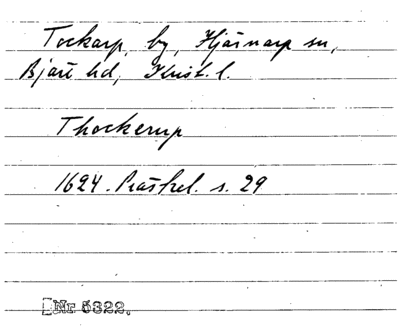 Tockarp, by, Hjärnarp sn,
Bjäre hd, Krist. l.
Thockerup
1624. Prästrel. s. 29
Nr 5322.